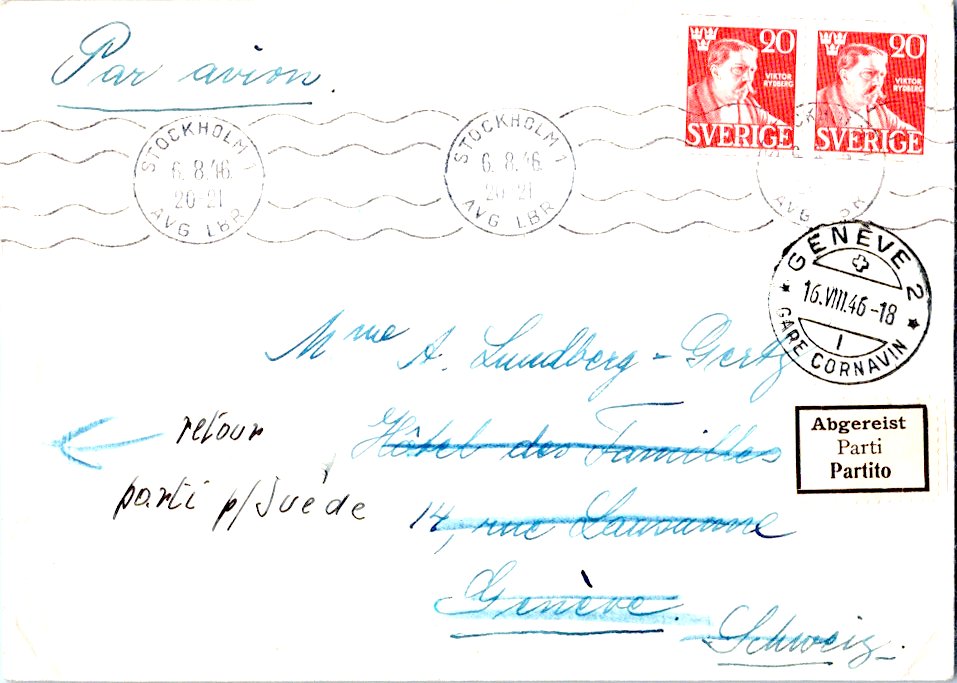 Par avion.
20
VIKTOR
RYDBERG
SVERIGE
20
VIKTOR
RYDBERG
SVERIGE
STOCKHOLM 1
6.8.46.
20-21
AVG LBR
STOCKHOLM 1
6.8.46.
20-21
AVG LBR
GENÈVE 2
16.VIII.46-18
1
GARE CORNAVIN
Mme A. Lundberg-Gertz
Hôtel des Familles
14, rue Lausanne
Genève.
Schweiz.
retour
parti p/Suéde
Abgereist
Parti
Partito